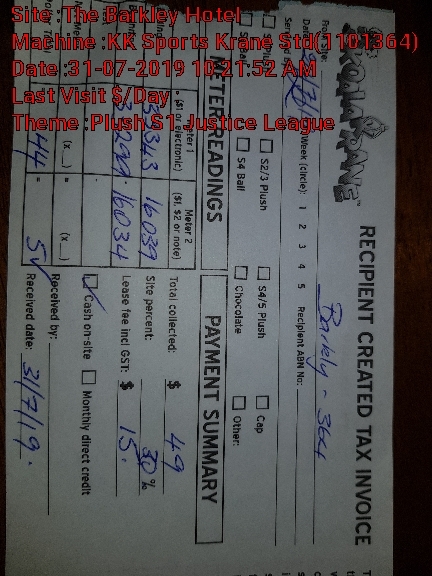 Site :The Barkley Hotel
Machine :KK Sports Krane Std(1101364)
Date :31-07-2019 10:21:52 AM
Last Visit $/Day
Theme :Plush S1 Justice League
KOALA KRANE
RECIPIENT CREATED TAX INVOICE
Barkly - 364
Week (circle): 1 2 3 4 5 Recipient ABN No:
S2/3 Plush S4/5 Plush Cap
S4 Ball Chocolate Other:
METER READINGS
PAYMENT SUMMARY
Meter 1
($1 or electronic)
Meter 2
($1, $2 or note)
16039
16034
44 5
(x ) = (x ) =
Total collected: $ 49
Site percent: 30 %
Lease fee incl GST: $ 15.
Cash on-site Monthly direct credit
Received by:
Received date: 31/7/19.